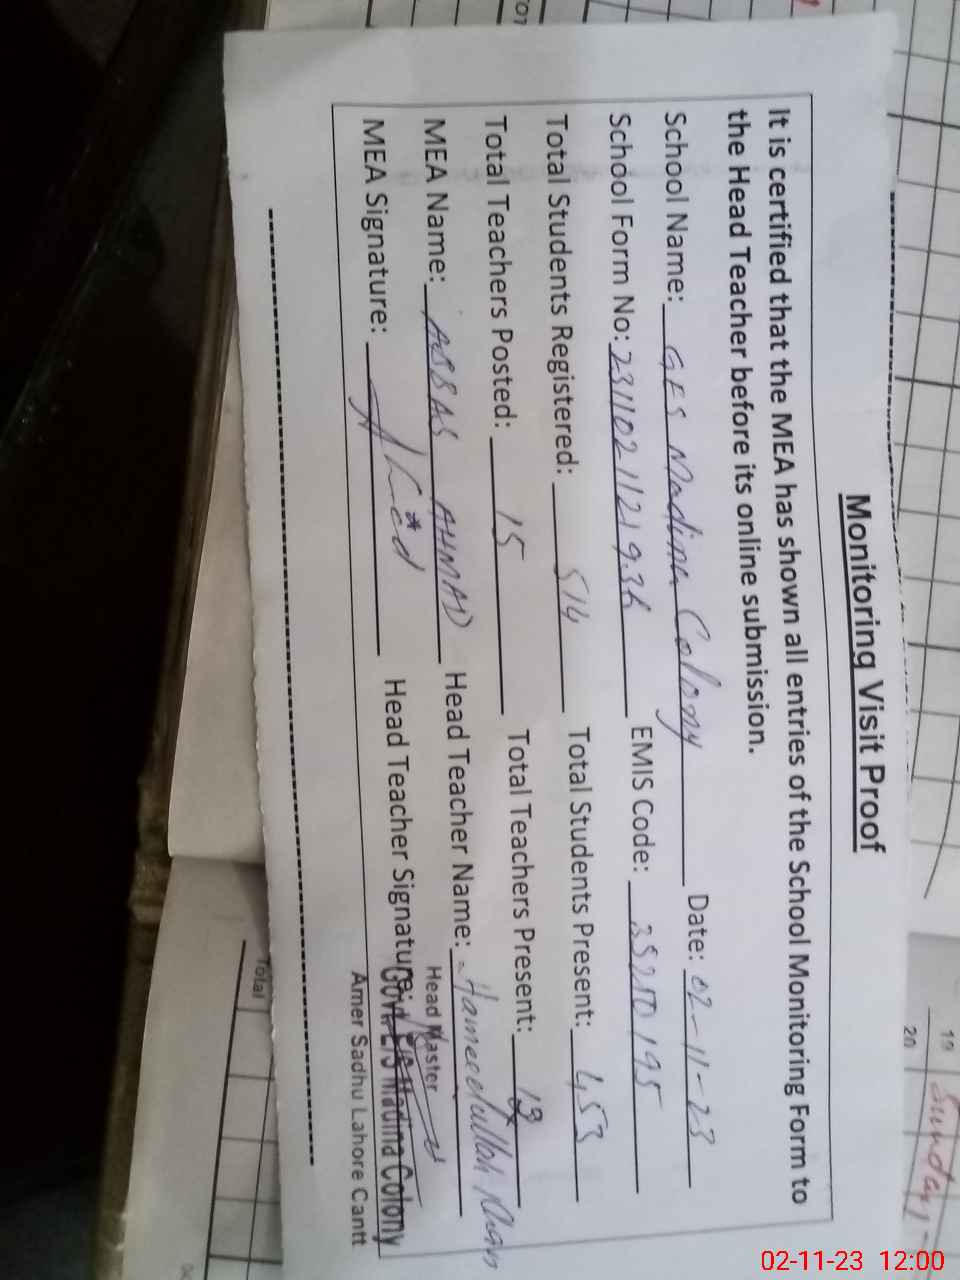 Monitoring Visit Proof
It is certified that the MEA has shown all entries of the School Monitoring Form to
the Head Teacher before its online submission.
School Name: GES Madina Colony Date: 02-11-23
School Form No: EMIS Code: 35210195
Total Students Registered: 514 Total Students Present: 453
Total Teachers Posted: 15 Total Teachers Present: 13
MEA Name: ABBAS AHMAD Head Teacher Name: Hameedullah Khan
MEA Signature: Head Teacher Signature:
Head Master
Govt. E/S Madina Colony
Amer Sadhu Lahore Cantt
Total
19
20
Sunday
02-11-23 12:00